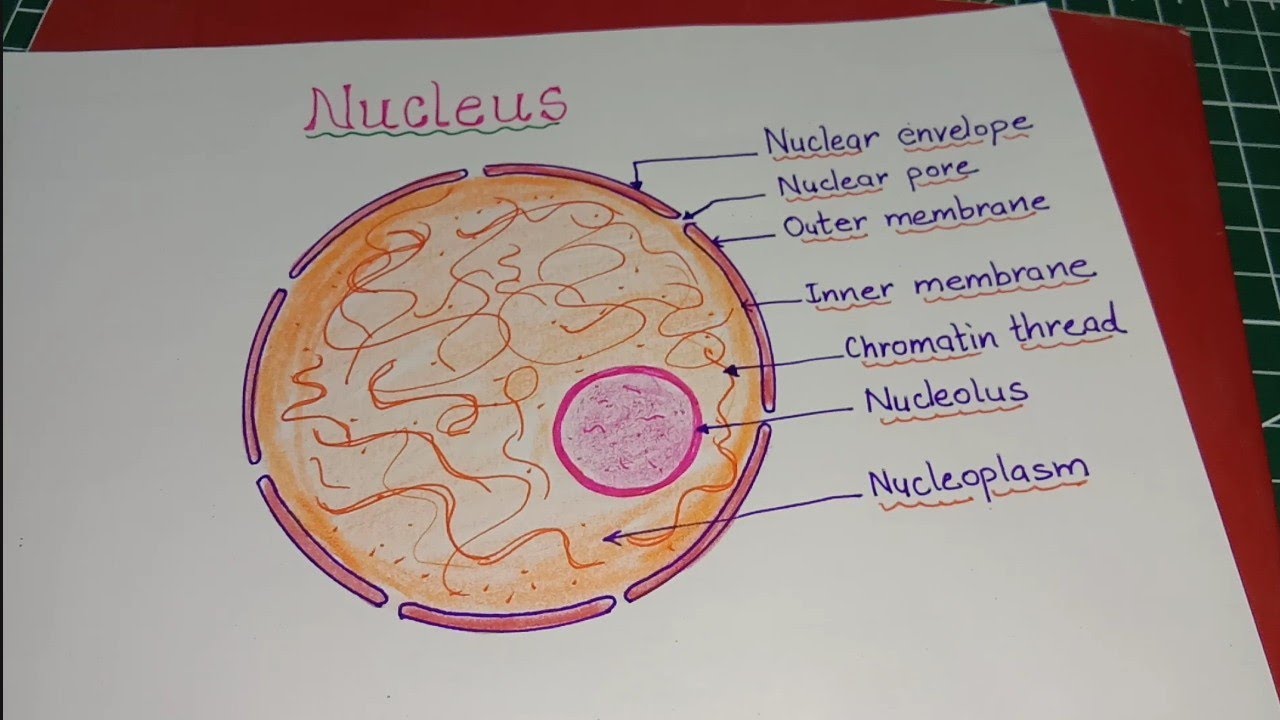 Nucleus
Nuclear envelope
Nuclear pore
Outer membrane
Inner membrane
Chromatin thread
Nucleolus
Nucleoplasm